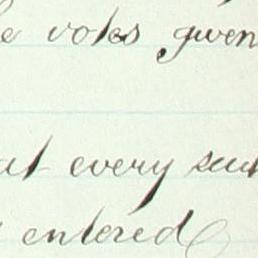 votes given
every such
entered